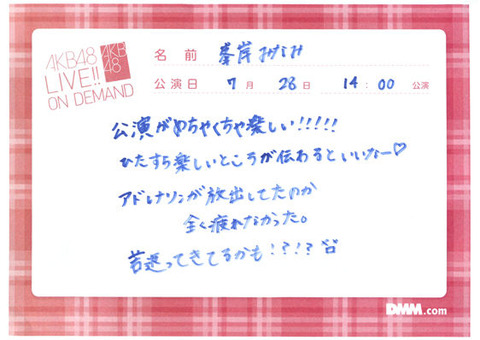 AKB48
LIVE!!
ON DEMAND
AKB
48
名前 峯岸みなみ
公演日 7月 28日 14:00 公演
公演がめちゃくちゃ楽しい!!!!!
ひたすら楽しいところが伝わるといいなー♡
アドレナリンが放出してたのか
全く疲れなかった。
若返ってきてるかも!?!?
DMM.com